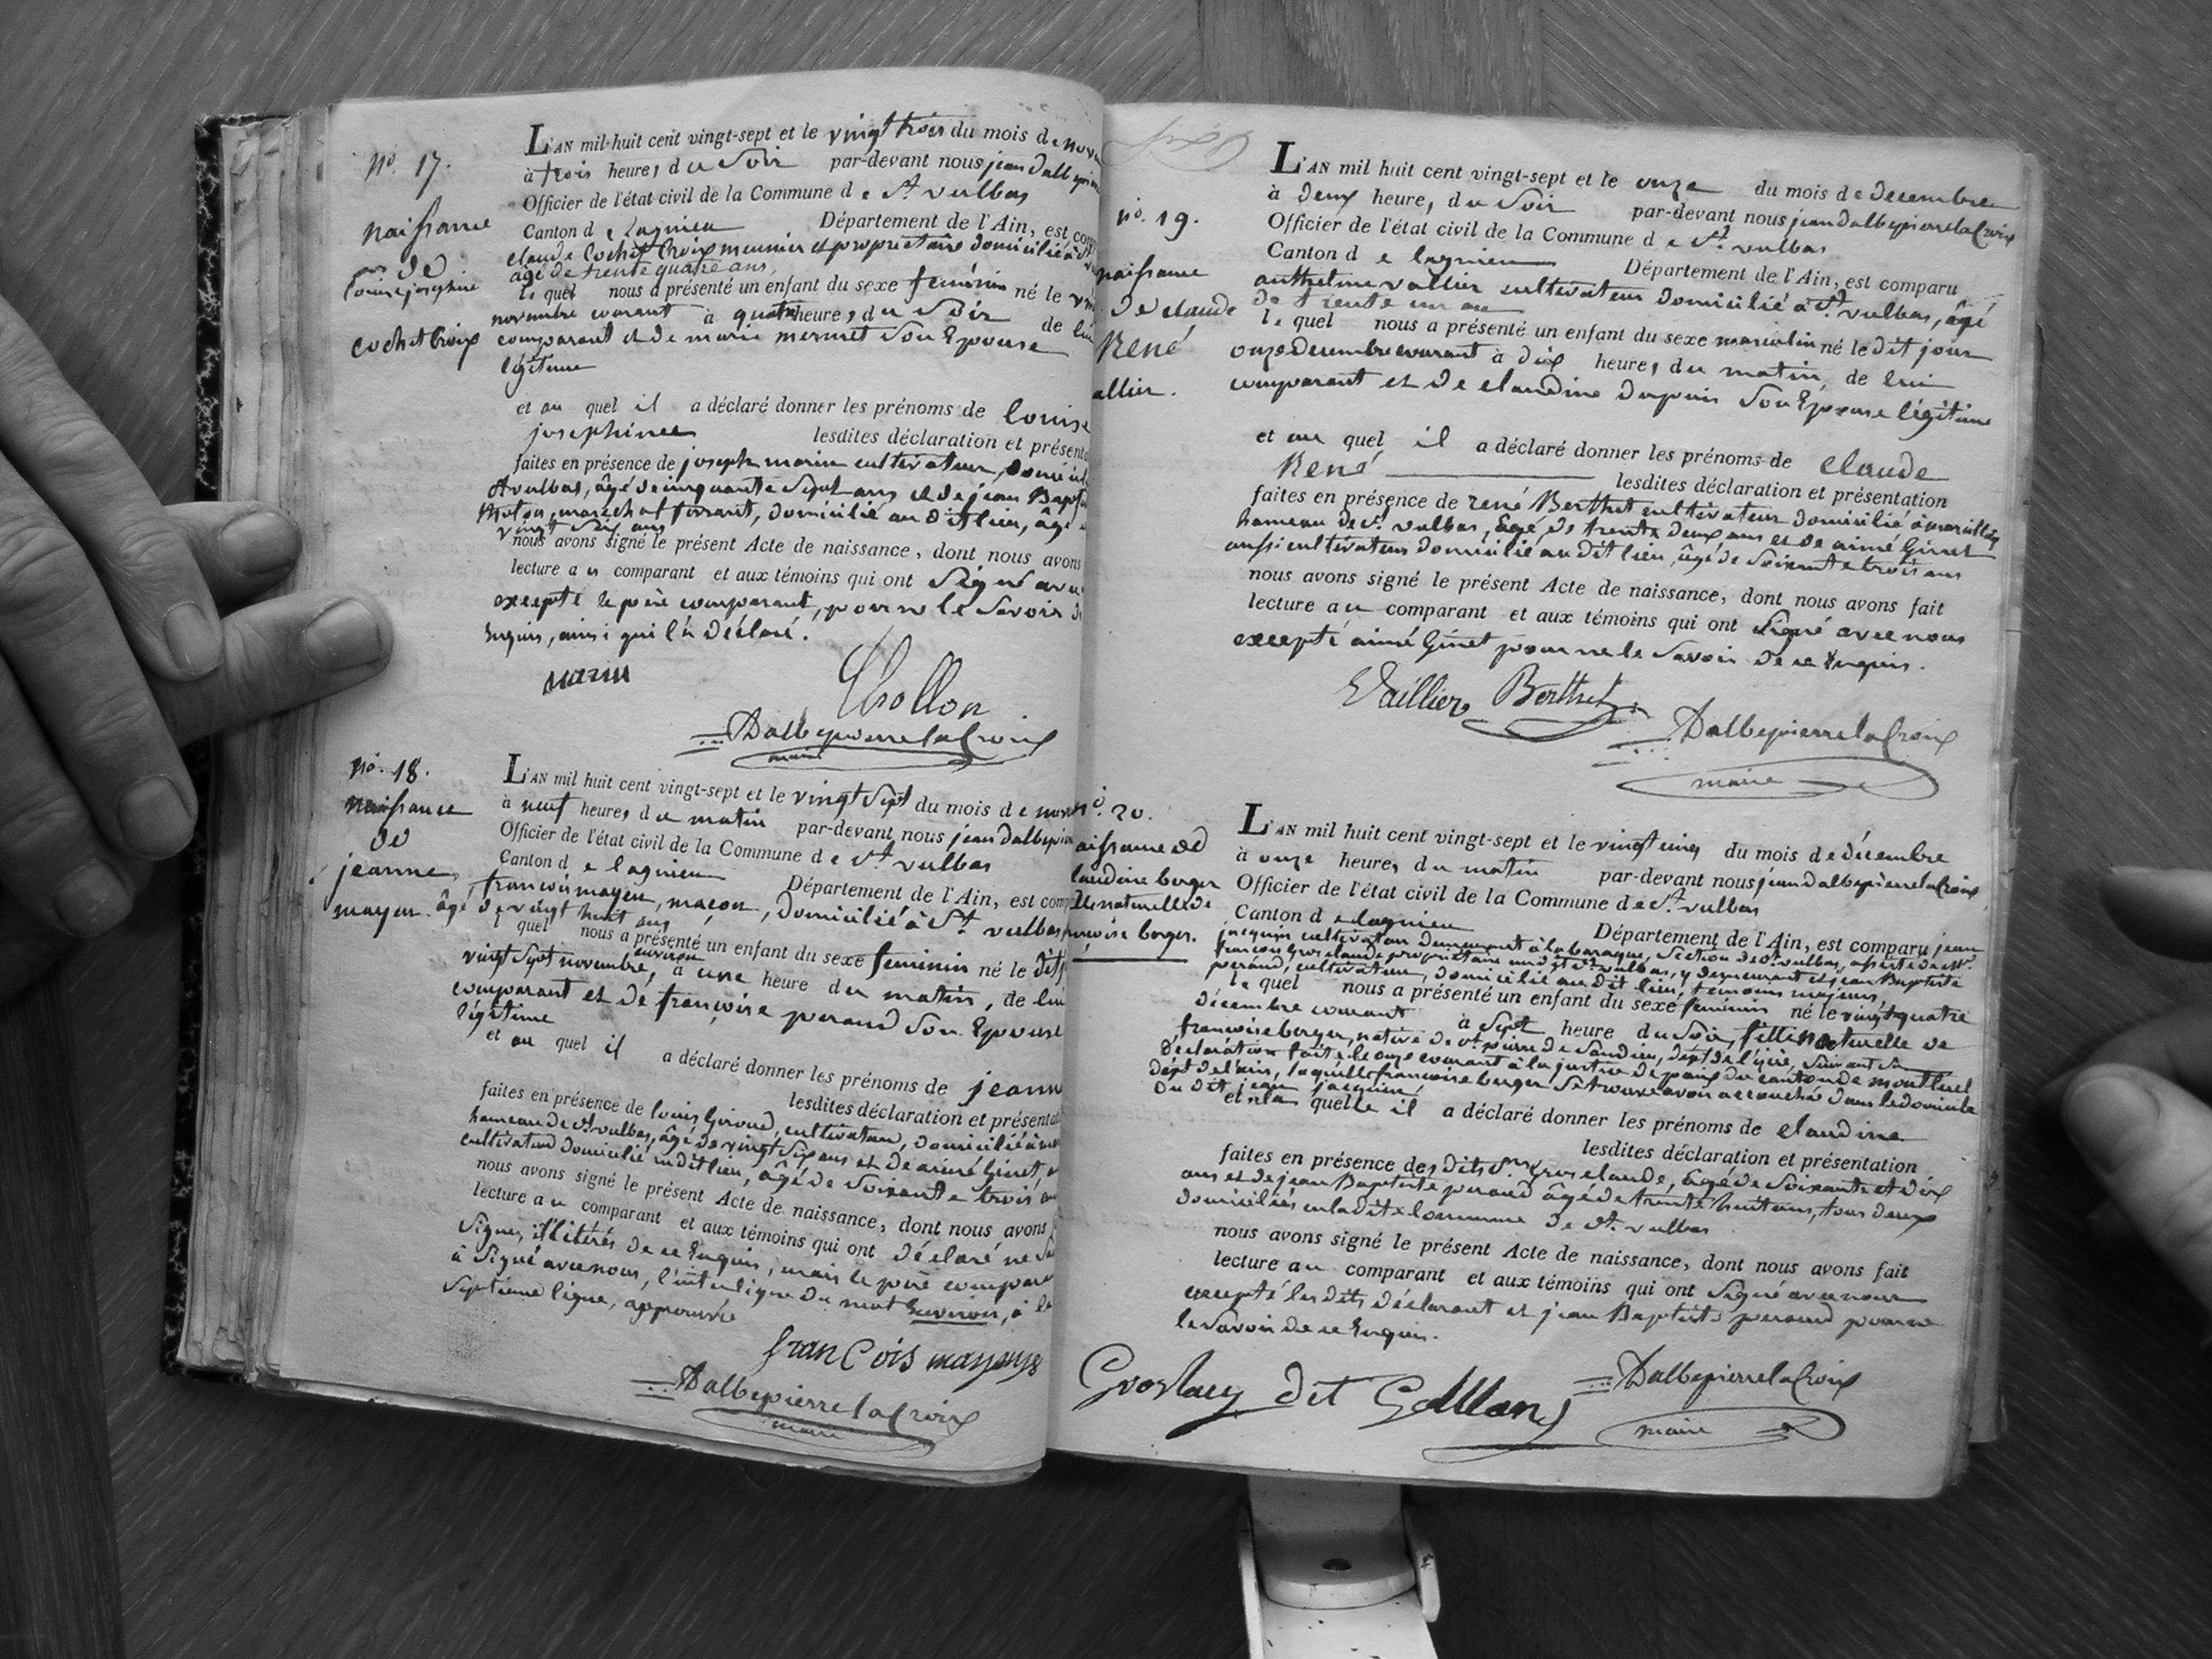 nº. 17.
naissance
de
louise josephine
cochet Croix
L'AN mil-huit cent vingt-sept et le vingt trois du mois de nov
à trois heures du soir par-devant nous jean dalbepier
Officier de l'état civil de la Commune de St. vulbas
Canton de Lagnieu Département de l'Ain, est com
claude Cochet Croix meunier et propriétaire domicilié à St
âgé de trente quatre ans,
le quel nous a présenté un enfant du sexe féminin né le vin
novembre courant à quatre heures du soir de lui
comparant et de marie mermet son Epouse
légitime
et au quel il a déclaré donner les prénoms de louise
josephine lesdites déclaration et présenta
faites en présence de joseph marin cultivateur, domicil
St vulbas, âgé de cinquante sept ans et de jean Baptis
maréchal ferrant, domicilié au dit lieu, âgé
vingt six ans
nous avons signé le présent Acte de naissance, dont nous avons
lecture au comparant et aux témoins qui ont signé avec
excepté le père comparant, pour ne le savoir de
Enquis, ainsi qu'il l'a déclaré.
marin
Chollon
Dalbepierre la Croix
maire
nº. 18.
naissance
de
jeanne
mayen
L'AN mil huit cent vingt-sept et le vingt sept du mois de nov
à neuf heures du matin par-devant nous jean dalbepier
Officier de l'état civil de la Commune de St. vulbas
Canton de lagnieu Département de l'Ain, est com
françois mayen, maçon, domicilié à St. vulbas
âgé de vingt huit ans
l quel nous a présenté un enfant du sexe féminin né le dit j
environ
vingt sept novembre, à une heure du matin, de lui
comparant et de françoise perand son Epouse
légitime
et au quel il a déclaré donner les prénoms de jeann
lesdites déclaration et présenta
faites en présence de louis Giroud, cultivateur, domicilié à mar
hameau de St. vulbas, âgé de vingt six ans et de aimé Ginet,
cultivateur domicilié au dit lieu, âgé de soixante trois ans
nous avons signé le présent Acte de naissance, dont nous avons
lecture au comparant et aux témoins qui ont déclaré ne
signer, illitérés de ce Enquis, mais le père compara
à signé avec nous, l'interligne du mot environ, à la
septième ligne, approuvée
franCois
Dalbepierre la Croix
maire
nº. 19.
naissance
de claude
René
allier.
L'AN mil huit cent vingt-sept et le onze du mois de decembre
à deux heures du soir par-devant nous jean dalbepierre la Croix
Officier de l'état civil de la Commune de St. vulbas
Canton de lagnieu Département de l'Ain, est comparu
anthelme vallier cultivateur domicilié à St. vulbas, âgé
de trente un an
le quel nous a présenté un enfant du sexe masculin né le dit jour
onze decembre courant à dix heures du matin, de lui
comparant et de claudine dupuis son Epouse légitime
et au quel il a déclaré donner les prénoms de claude
René lesdites déclaration et présentation
faites en présence de rené Berthet cultivateur domicilié à marcillieu
hameau de St. vulbas, Agé de trente deux ans et de aimé Ginet
aussi cultivateur domicilié au dit lieu, âgé de soixante trois ans
nous avons signé le présent Acte de naissance, dont nous avons fait
lecture au comparant et aux témoins qui ont signé avec nous
excepté aimé Ginet pour ne le savoir de ce Enquis.
Vaillier Berthet
Dalbepierre la Croix
maire
nº. 20.
aissance de
laudine berger
fille naturelle de
ançoise berger.
L'AN mil huit cent vingt-sept et le vingt cinq du mois de décembre
à onze heures du matin par-devant nous jean dalbepierre la Croix
Officier de l'état civil de la Commune de St. vulbas
Canton de lagnieu Département de l'Ain, est comparu jean
jacquin cultivateur demeurant à la baraque, section de St. vulbas, assisté de Mr.
françois Grosclaude propriétaire au dit St. vulbas, y demeurant et jean Baptiste
perand, cultivateur, domicilié au dit lieu, témoins majeurs,
le quel nous a présenté un enfant du sexe féminin né le vingt quatre
décembre courant à sept heure du soir, fille naturelle de
françoise berger, native de St. pierre de Candieu, dépt de l'isère, suivant sa
déclaration faite le onze courant à la justice de paix du canton de montluel
dépt de l'ain, laquelle françoise berger se trouve avoir accouché dans le domicile
du dit jean jacquin,
et à la quelle il a déclaré donner les prénoms de claudine
lesdites déclaration et présentation
faites en présence des dits Srs. Grosclaude, âgé de soixante et dix
ans et de jean Baptiste perand âgé de trente huit ans, tous deux
domiciliés en la dite Commune de St. vulbas
nous avons signé le présent Acte de naissance, dont nous avons fait
lecture au comparant et aux témoins qui ont signé avec nous
excepté les dits déclarant et jean Baptiste perand pour ne
le savoir de ce Enquis.
dit
Dalbepierre la Croix
maire